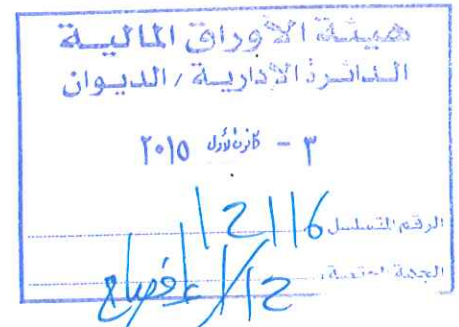 هيئة الأوراق المالية
الدائرة الإدارية / الديوان
٣ - كانون الأول ٢٠١٥
الرقم المتسلسل 12116
الجهة المختصة 12/1 إفصاح